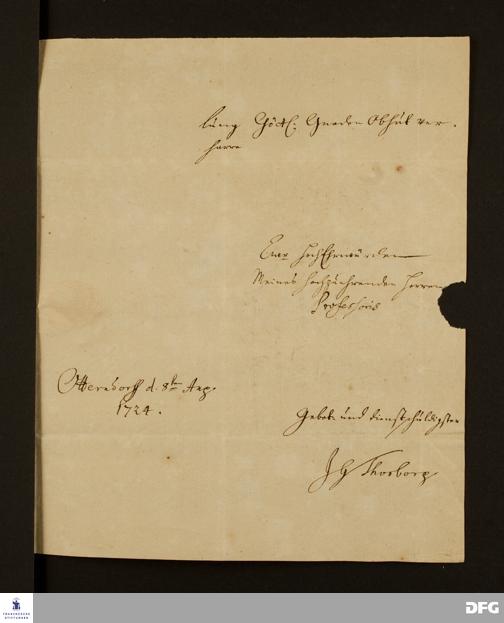 lung Göttl. Gnaden Obhut ver-
harre
Euer HochEhrwürden
Meines hochzuehrenden Herren
Professoris
Otterndorff d. 8te Aug.
1724.
Gebet und dienstschuldigster
J G Thorborg
FRANCKESCHE
STIFTUNGEN
DFG